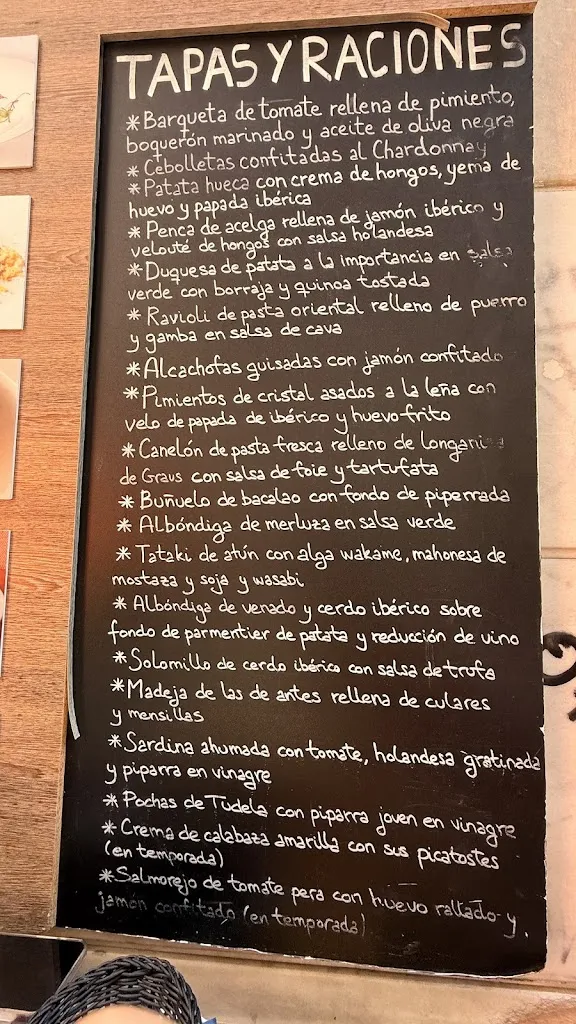 TAPAS Y RACIONES
*Barqueta de tomate rellena de pimiento,
boquerón marinado y aceite de oliva negra
*Cebolletas confitadas al Chardonnay
*Patata hueca con crema de hongos, yema de
huevo y papada ibérica
*Penca de acelga rellena de jamón ibérico y
velouté de hongos con salsa holandesa
*Duquesa de patata a la importancia en salsa
verde con borraja y quinoa tostada
*Ravioli de pasta oriental relleno de puerro
y gamba en salsa de cava
*Alcachofas guisadas con jamón confitado
*Pimientos de cristal asados a la leña con
velo de papada de ibérico y huevo frito
*Canelón de pasta fresca relleno de longaniza
de Graus con salsa de foie y tartufata
*Buñuelo de bacalao con fondo de piperrada
*Albóndiga de merluza en salsa verde
*Tataki de atún con alga wakame, mahonesa de
mostaza y soja y wasabi
*Albóndiga de venado y cerdo ibérico sobre
fondo de parmentier de patata y reducción de vino
*Solomillo de cerdo ibérico con salsa de trufa
*Madeja de las de antes rellena de culares
y mensillas
*Sardina ahumada con tomate, holandesa gratinada
y piparra en vinagre
*Pochas de Tudela con piparra joven en vinagre
*Crema de calabaza amarilla con sus picatostes
(en temporada)
*Salmorejo de tomate pera con huevo rallado y
jamón confitado (en temporada)